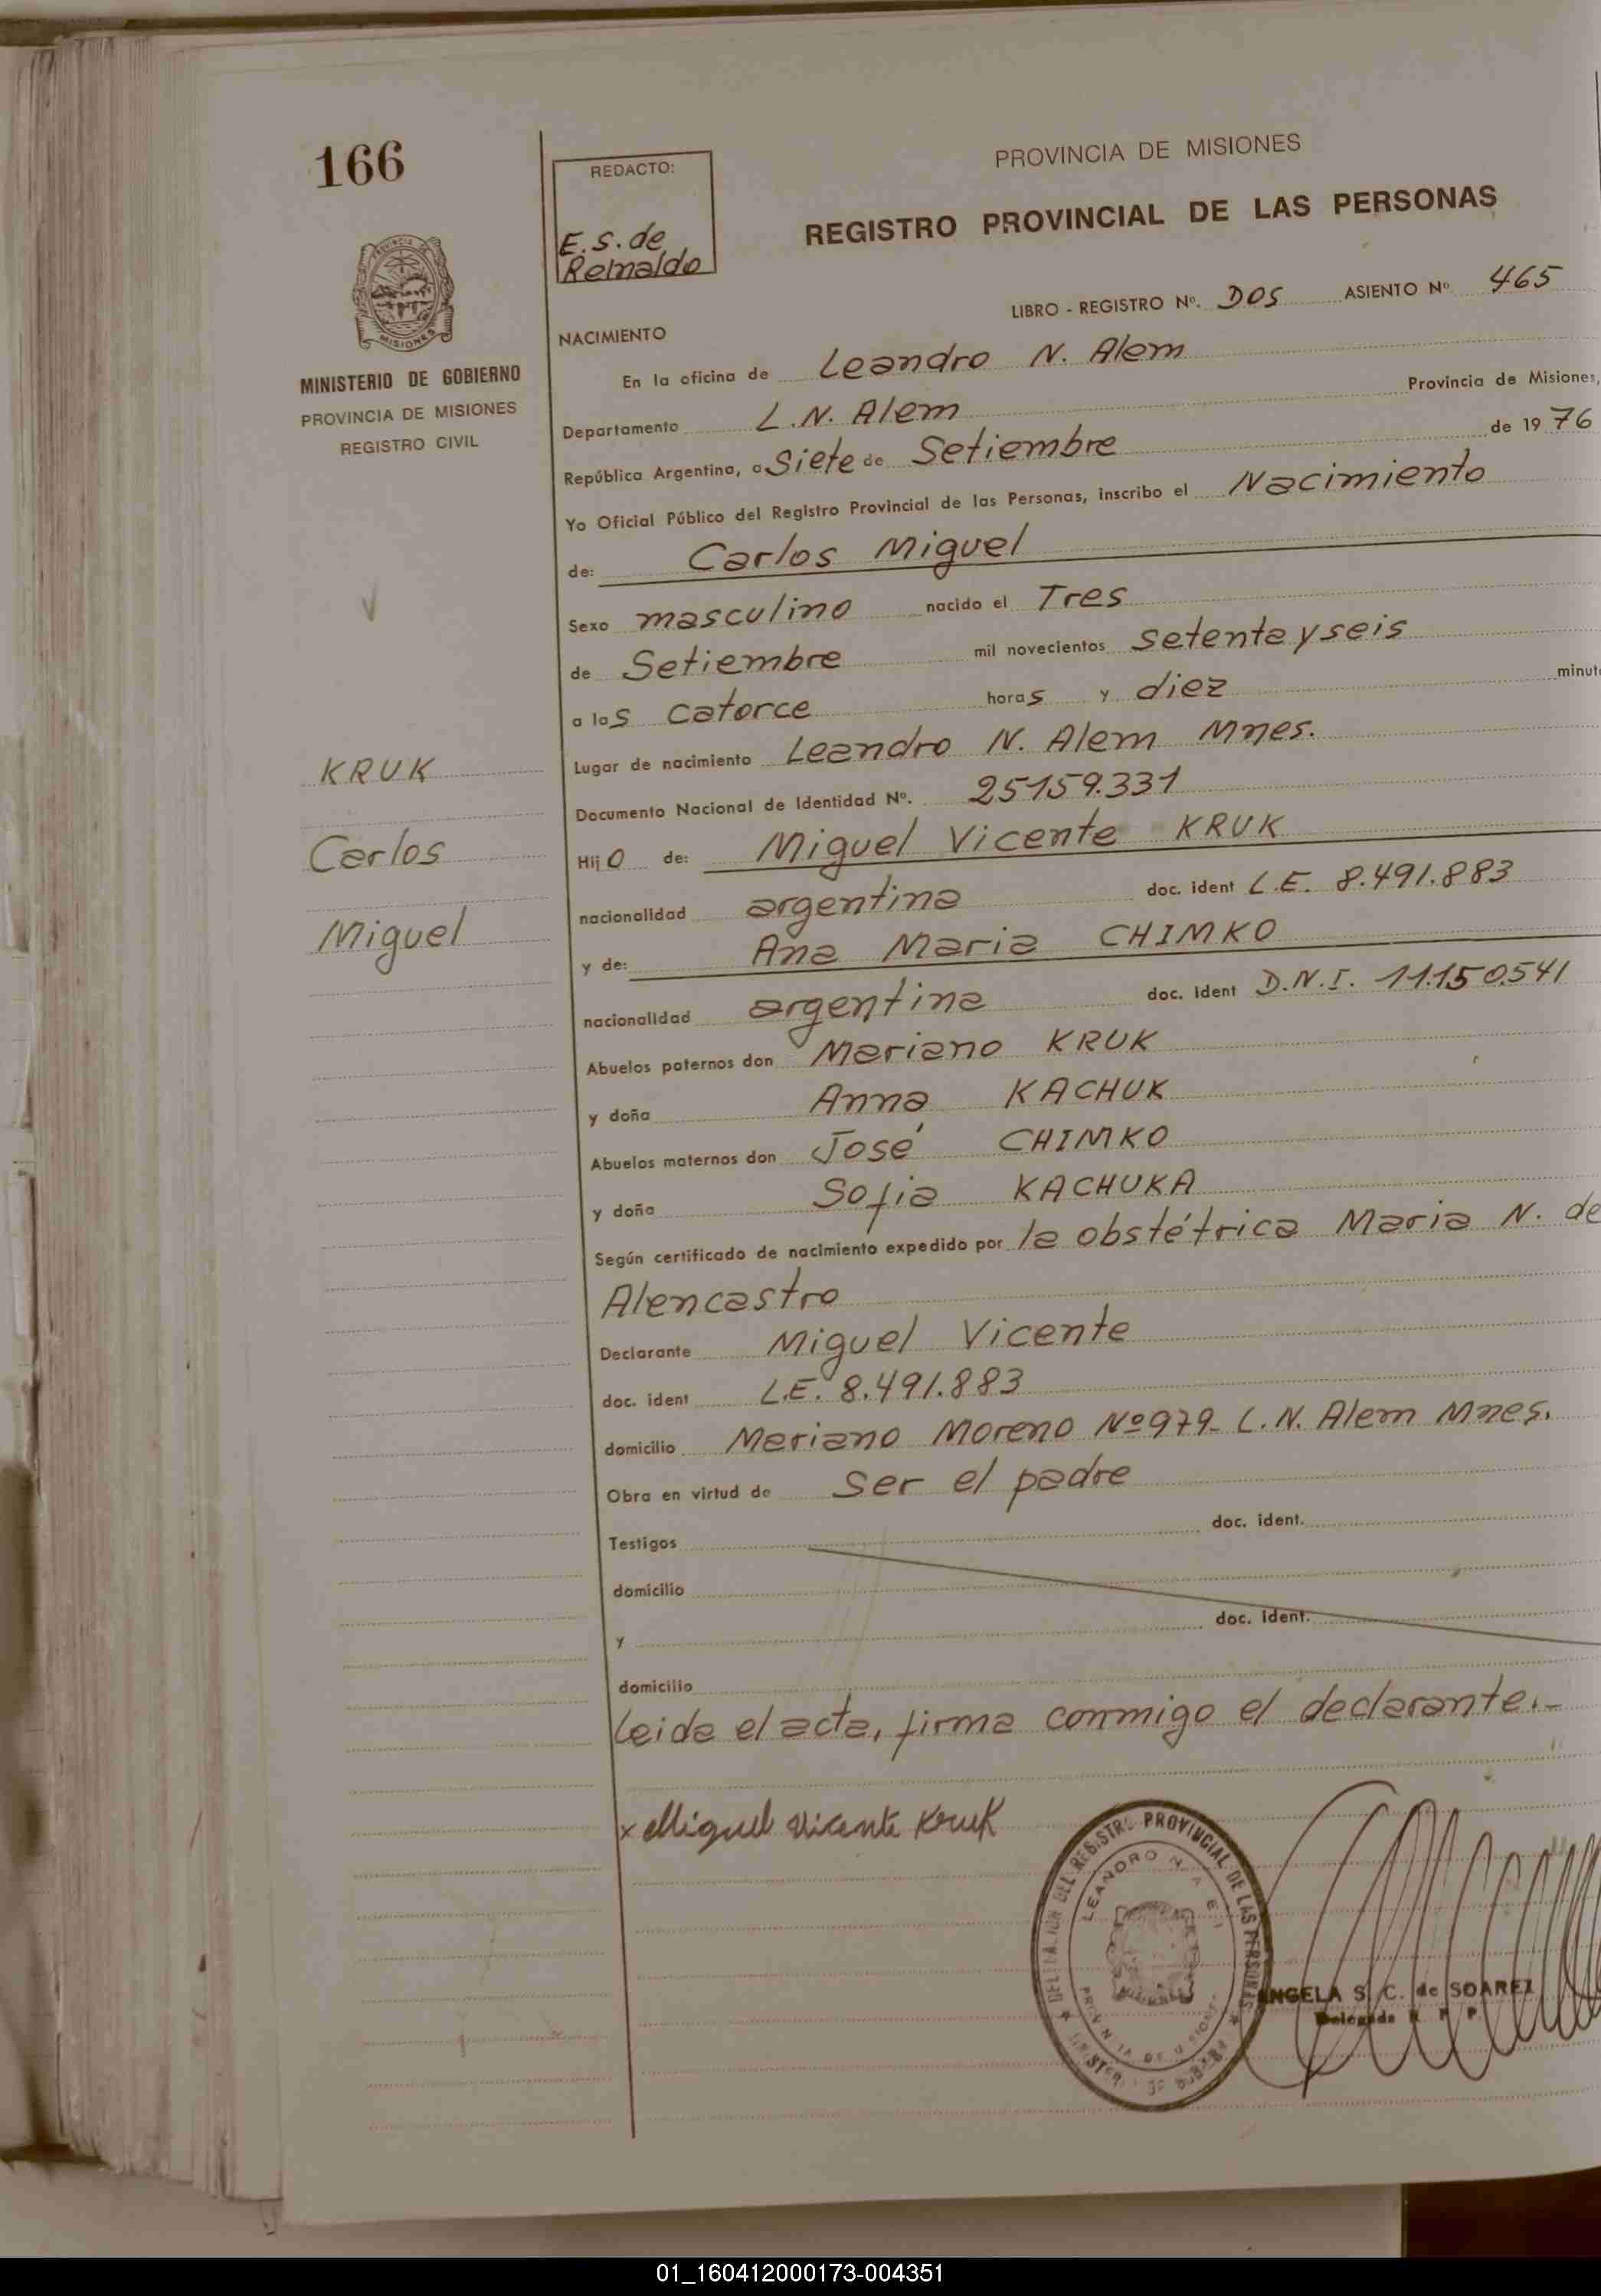 166
REDACTO:
E.S. de
Reinaldo
PROVINCIA DE MISIONES
REGISTRO PROVINCIAL DE LAS PERSONAS
LIBRO - REGISTRO Nº. DOS ASIENTO Nº 465
MISIONES
MINISTERIO DE GOBIERNO
PROVINCIA DE MISIONES
REGISTRO CIVIL
NACIMIENTO
En la oficina de Leandro N. Alem
Departamento L.N. Alem Provincia de Misiones,
República Argentina, a Siete de Setiembre de 1976
Yo Oficial Público del Registro Provincial de las Personas, inscribo el Nacimiento
de: Carlos Miguel
Sexo masculino nacido el Tres
de Setiembre mil novecientos setenta y seis
a las catorce horas y diez minut
Lugar de nacimiento Leandro N. Alem Mnes.
Documento Nacional de Identidad Nº. 25159.331
KRUK
Carlos
Miguel
Hijo de: Miguel Vicente KRUK
nacionalidad argentina doc. ident L.E. 8.491.883
y de: Ana Maria CHIMKO
nacionalidad argentina doc. ident D.N.I. 11.150.541
Abuelos paternos don Mariano KRUK
y doña Anna KACHUK
Abuelos maternos don José CHIMKO
y doña Sofia KACHUKA
Según certificado de nacimiento expedido por la obstétrica Maria N. de
Alencastro
Declarante Miguel Vicente
doc. ident L.E. 8.491.883
domicilio Mariano Moreno Nº 979- L.N. Alem Mnes.
Obra en virtud de ser el padre
Testigos doc. ident.
domicilio
y doc. ident.
domicilio
Leida el acta, firma conmigo el declarante.-
x Miguel Vicente Kruk
REGISTRO PROVINCIAL DE LAS PERSONAS
LEANDRO N.
ANGELA S. C. de SOAREZ
Delegada R. P. P.
01_160412000173-004351